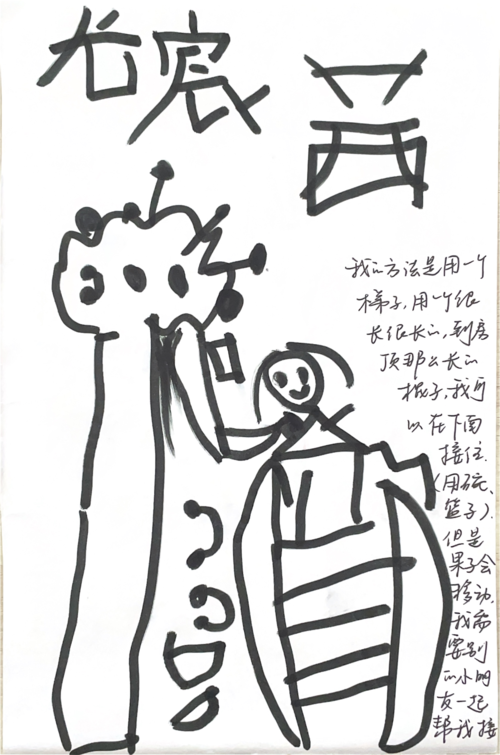 我的方法是用一个
梯子,用一个很
长很长的,到房
顶那么长的
棍子,我可
以在下面
接住.
(用碗、
篮子).
但是
果子会
移动.
我需
要别
的小朋
友一起
帮我接